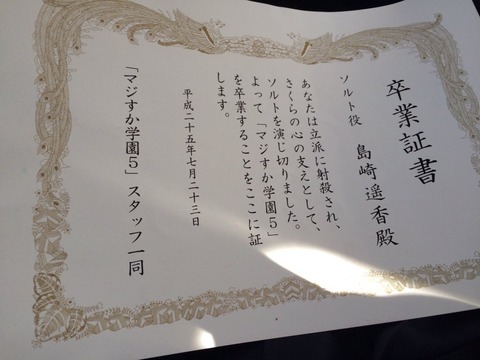 卒業証書
ソルト役 島崎遥香殿
あなたは立派に射殺され、
さくらの心の支えとして、
ソルトを演じ切りました。
よって「マジすか学園5」
を卒業することをここに証
します。
平成二十五年七月二十三日
「マジすか学園5」スタッフ一同